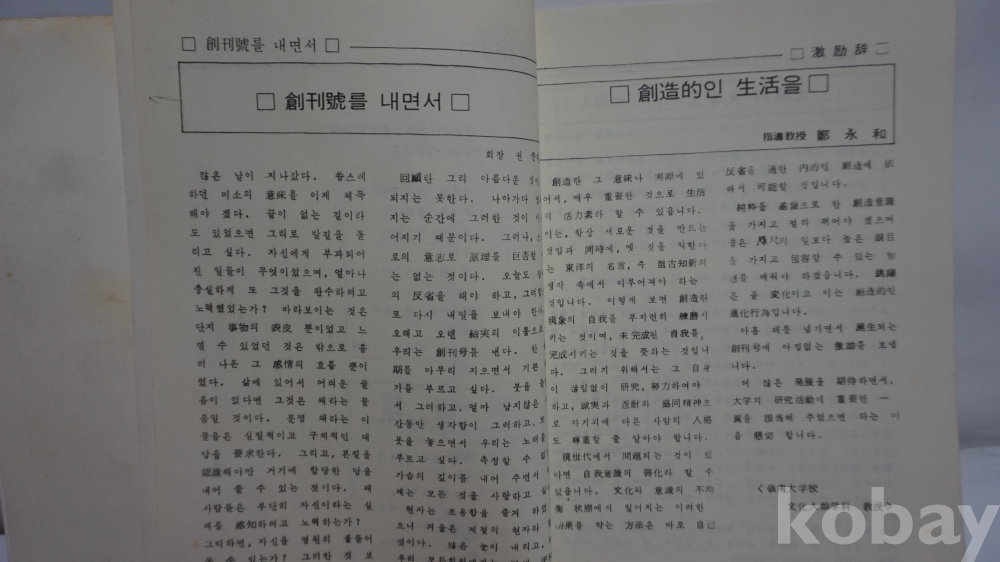 □ 創刊號를 내면서 □
□ 創刊號를 내면서 □
회장 권
많은 날이 지나갔다. 씁스레
하던 미소의 意味를 이제 체득
해야 겠다. 끝이 없는 길이라
도 있었으면 그리로 발길을 돌
리고 싶다. 자신에게 부과되어
진 일들이 무엇이었으며, 얼마나
충실하게 또 그것을 완수하려고
노력했었는가? 바라보이는 것은
단지 事物의 表皮 뿐이었고 느
낄 수 있었던 것은 밖으로 흘
러 나온 그 感情의 흐름 뿐이
었다. 삶에 있어서 어려운 물
음이 있다면 그것은 왜라는 물
음일 것이다. 분명 왜라는 이
물음은 실질적이고 구체적인 대
답을 要求한다. 그리고, 본질을
認識해야만 거기에 합당한 답을
내어 줄 수 있는 것이다. 왜
사람들은 부단히 자신이라는 실
체를 感知하려고 노력하는가?
그러하면, 자신을 영원히 붙들어
둘 수 있는가? 그러한 것 보
回顧란 그리 아름다운 것
되지는 못한다. 나아가다
지는 순간에 그러한 것이
어지기 때문이다. 그러나,
로의 意志로 原理를 巨否할
는 없는 것이다. 오늘도
의 反省을 해야 하고, 그러함
로 다시 내일을 보내야 한다
오래고 오랜 結実의 이룸으로
우리는 創刊号를 낸다. 한
期를 마무리 지으면서 기쁜
가를 부르고 싶다. 붓을
서 그러하고, 얼마 남지않은
간동안 생각함이 그러하고,
붓을 놓으면서 우리는 노래를
부르고 싶다. 측정할 수
가슴의 깊이를 내어 주면서
제는 모든 것을 사랑하고
현자는 조용함을 즐겨 하
으니 겨울은 계절의 현자라
다. 많은 눈이 내리고,
□ 激励辞 二
□ 創造的인 生活을 □
指導敎授 鄭永和
創造란 그 意味나 実際에 있
어서, 매우 重要한 것으로 生活
의 活力素라 할 수 있읍니다.
이는, 항상 새로운 것을 만드는
것임과 同時에, 옛 것을 익힌다
는 東洋의 名言, 즉 温古知新의
생각 속에서 이루어져야 하는
것입니다. 이렇게 보면 創造란
現象의 自我를 부지런히 練磨시
키는 것이며, 未完成된 自我를,
完成시키는 것을 뜻하는 것입니
다. 그러기 위해서는 그 自身
이 끊임없이 研究, 努力하여야
하고, 誠実과 忍耐와 協同精神으
로 자기외에 다른 사람의 人格
도 尊重할 줄 알아야 합니다.
現世代에서 問題되는 것이 있
다면 自我意識의 弱化라 할 수
있읍니다. 文化와 意識의 不均
衡 状態에서 빚어지는 이러한
結果를 막는 方法은 바로 自己
反省을 통한 内的인 創造에 依
해서 可能할 것입니다.
純粋를 基盤으로 한 創造意識
을 가지고 멀리 뛰어야 겠으며
을 가지고 包容할 수 있는
를 배워야 하겠읍니다. 跳躍
은 곧 変化이고 이는 創造的인
進化行為입니다.
아홉 해를 넘기면서 誕生되는
創刊号에 아낌없는 激励를 보냅
니다.
더 많은 発展을 期待하면서,
大学의 研究活動에 重要한 一
翼을 担当해 주었으면 하는 마
음 懇切합니다.
<嶺南大学校
文化人類学科 教授>
kobay